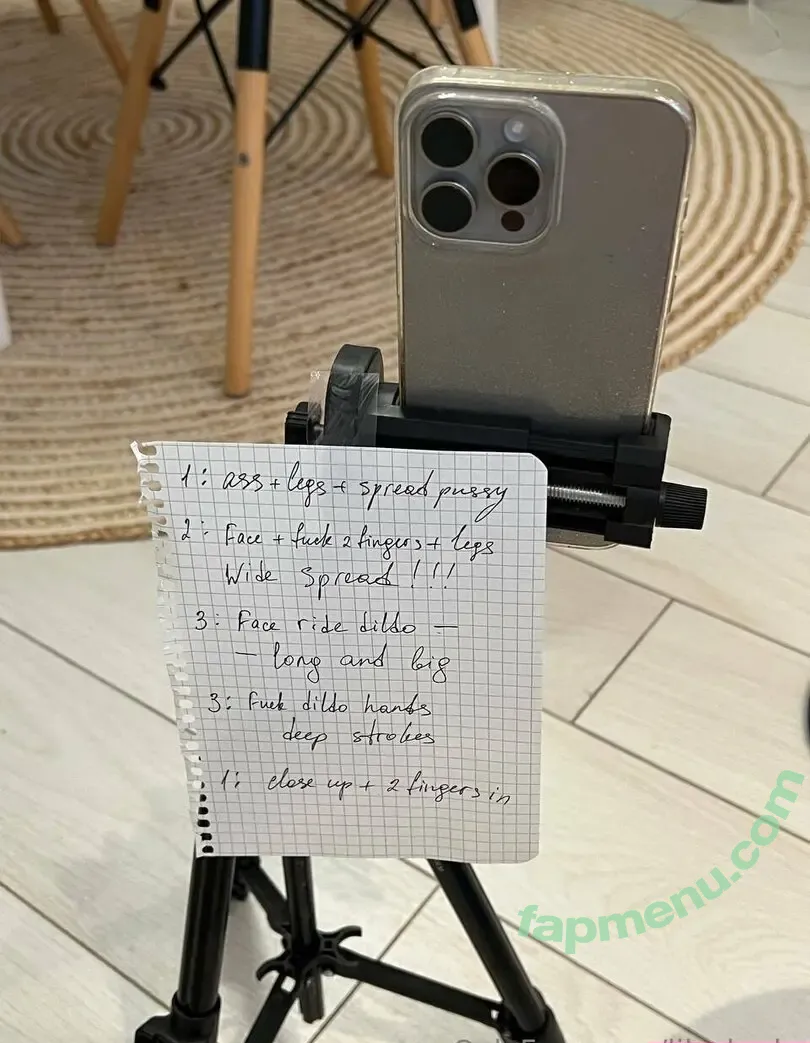 1: ass + legs + spread pussy
2: Face + fuck 2 fingers + legs
Wide spread !!!
3: Face ride dildo —
— long and big
3: Fuck dildo hands
deep strokes
1: close up + 2 fingers in
fapmenu.com